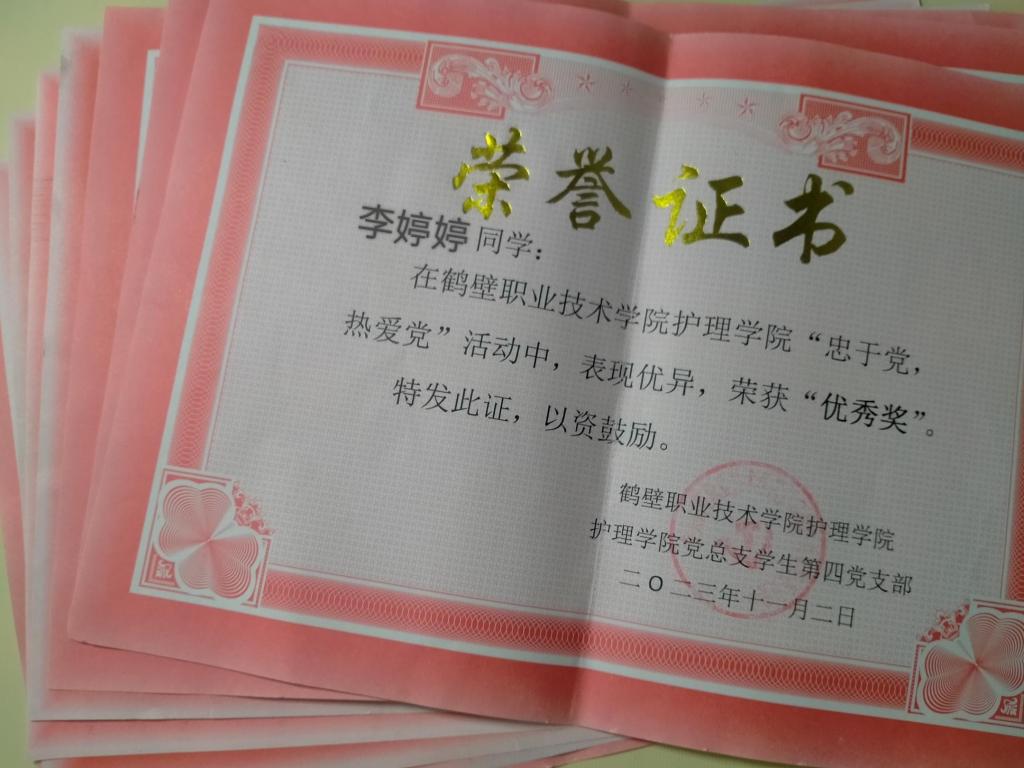 荣誉证书
李婷婷同学：
在鹤壁职业技术学院护理学院“忠于党，
热爱党”活动中，表现优异，荣获“优秀奖”。
特发此证，以资鼓励。
鹤壁职业技术学院护理学院
护理学院党总支学生第四党支部
二〇二三年十一月二日